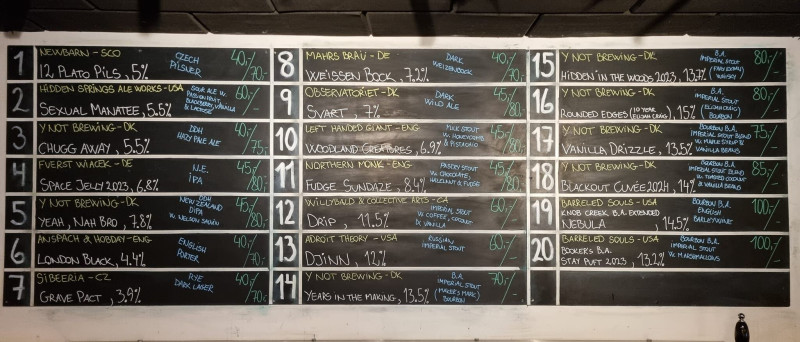 1
NEWBARN - SCO
12 PLATO PILS, 5%
CZECH
PILSNER
40,-/70,-
2
HIDDEN SPRINGS ALE WORKS - USA
SEXUAL MANATEE, 5.5%
SOUR ALE W.
PASSIONFRUIT,
BLACKBERRY, VANILLA
& LACTOSE
60,-/-
3
Y NOT BREWING - DK
CHUGG AWAY, 5.5%
DDH
HAZY PALE ALE
40,-/75,-
4
FUERST WIACEK - DE
SPACE JELLY 2023, 6.8%
N.E.
IPA
45,-/80,-
5
Y NOT BREWING - DK
YEAH, NAH BRO, 7.8%
DDH
NEW ZEALAND
DIPA
W. NELSON SAUVIN
45,-/80,-
6
ANSPACH & HOBDAY - ENG
LONDON BLACK, 4.4%
ENGLISH
PORTER
40,-/70,-
7
SIBEERIA - CZ
GRAVE PACT, 3.9%
RYE
DARK LAGER
40,-/70,-
8
MAHRS BRÄU - DE
WEISSEN BOCK, 7.2%
DARK
WEIZENBOCK
40,-/70,-
9
OBSERVATORIET - DK
SVART, 7%
DARK
WILD ALE
45,-/80,-
10
LEFT HANDED GIANT - ENG
WOODLAND CREATURES, 6.9%
MILK STOUT
W. HONEYCOMB
& PISTACHIO
45,-/80,-
11
NORTHERN MONK - ENG
FUDGE SUNDAIZE, 8.4%
PASTRY STOUT
W. CHOCOLATE,
HAZELNUT & FUDGE
45,-/80,-
12
WILLIBALD & COLLECTIVE ARTS - CA
DRIP, 11.5%
IMPERIAL STOUT
W. COFFEE, COCONUT
& VANILLA
60,-/-
13
ADROIT THEORY - USA
DJINN, 12%
RUSSIAN
IMPERIAL STOUT
60,-/-
14
Y NOT BREWING - DK
YEARS IN THE MAKING, 13.5%
B.A.
IMPERIAL STOUT
(MAKER'S MARK)
BOURBON
70,-/-
15
Y NOT BREWING - DK
HIDDEN IN THE WOODS 2023, 13.7%
B.A.
IMPERIAL STOUT
80,-/-
16
Y NOT BREWING - DK
ROUNDED EDGES (10 YEAR ELIJAH CRAIG), 15%
B.A.
IMPERIAL STOUT
(ELIJAH CRAIG)
BOURBON
80,-/-
17
Y NOT BREWING - DK
VANILLA DRIZZLE, 13.5%
BOURBON B.A.
IMPERIAL STOUT BLEND
W. MAPLE SYRUP &
VANILLA BEANS
75,-/-
18
Y NOT BREWING - DK
BLACKOUT CUVÉE 2024, 14%
BOURBON B.A.
IMPERIAL STOUT BLEND
W. TOASTED COCONUT
& VANILLA BEANS
85,-/-
19
BARRELED SOULS - USA
KNOB CREEK B.A. EXTENDED
NEBULA, 14.5%
BOURBON B.A.
ENGLISH
BARLEYWINE
100,-/-
20
BARRELED SOULS - USA
BOOKERS B.A.
STAY PUFT 2023, 13.2%
BOURBON B.A.
IMPERIAL STOUT
W. MARSHMALLOWS
100,-/-